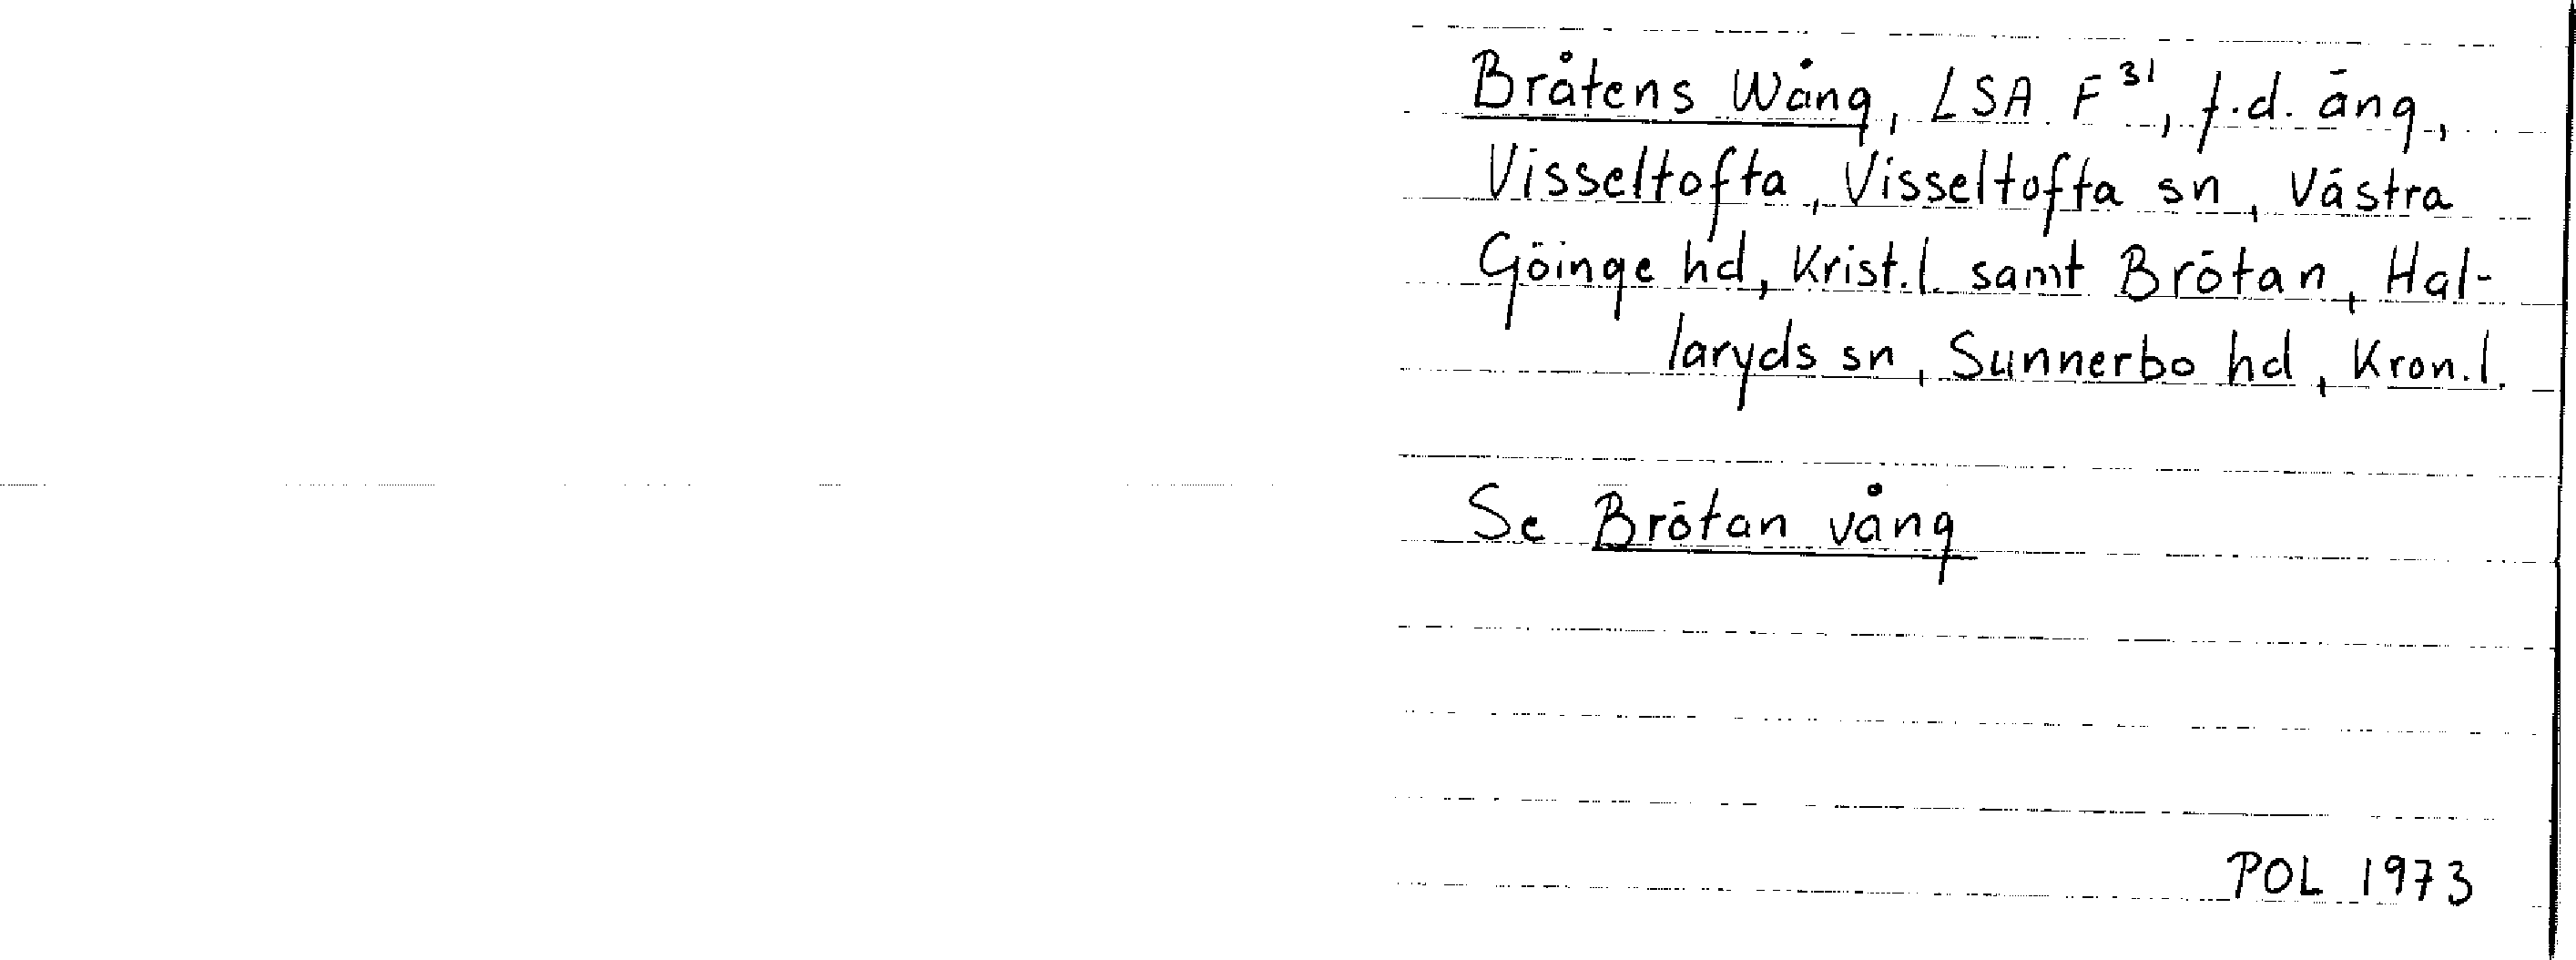 Bråtens Wång, LSA F³¹, f.d. äng,
Visseltofta, Visseltofta sn, Västra
Göinge hd, Krist.l. samt Brötan, Hal-
laryds sn, Sunnerbo hd, Kron.l.
Se Brötan vång
POL 1973